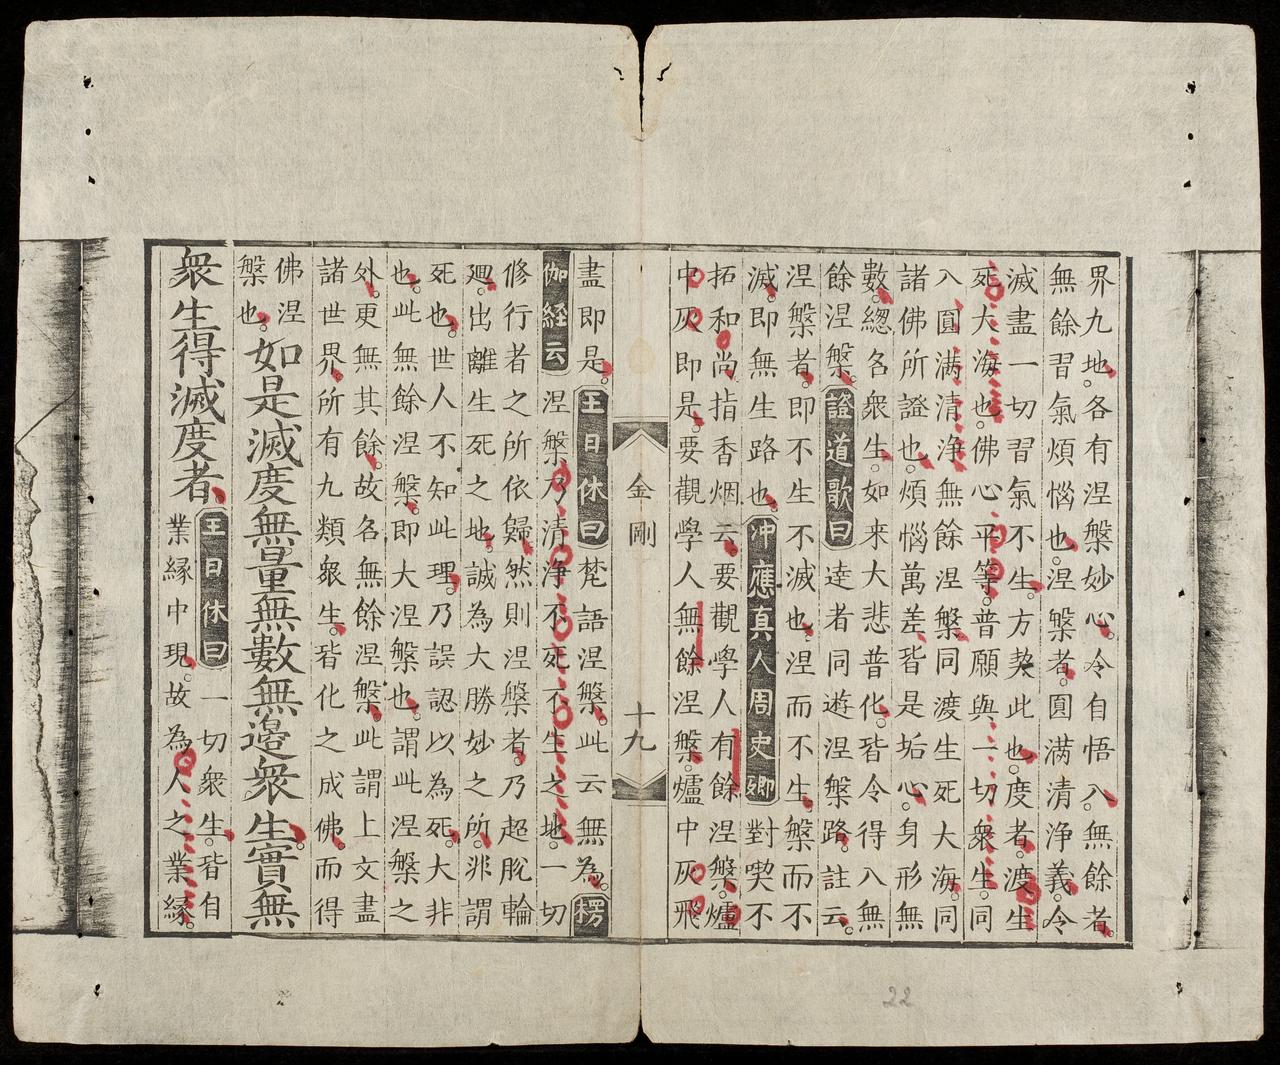 界九地。各有涅槃妙心。令自悟入。無餘者。
無餘習氣煩惱也。涅槃者。圓满清浄義。令
滅盡一切習氣不生。方契此也。度者。渡生
死大海也。佛心平等。普願與一切衆生。同
入圓满清浄無餘涅槃。同渡生死大海。同
諸佛所證也。煩惱萬差。皆是垢心。身形無
數。緫名衆生。如来大悲普化。皆令得入無
餘涅槃。證道歌曰達者同遊涅槃路。註云。
涅槃者。即不生不滅也。涅而不生。槃而不
滅。即無生路也。沖應真人周史卿對喫不
拓和尚指香烟云。要觀學人有餘涅槃。爐
中灰即是。要觀學人無餘涅槃。爐中灰飛
金剛
十九
盡即是。王日休曰梵語涅槃。此云無為。楞
伽經云涅槃乃清浄不死不生之地。一切
修行者之所依歸。然則涅槃者。乃超脫輪
廻。出離生死之地。誠為大勝妙之所。非謂
死也。世人不知此理。乃誤認以為死。大非
也。此無餘涅槃。即大涅槃也。謂此涅槃之
外。更無其餘。故名無餘涅槃。此謂上文盡
諸世界。所有九類衆生。皆化之成佛。而得
佛涅
槃也。如是滅度無量無數無邊衆生。實無
衆生得滅度者。王日休曰一切衆生。皆自
業緣中現。故為人之業緣。
22